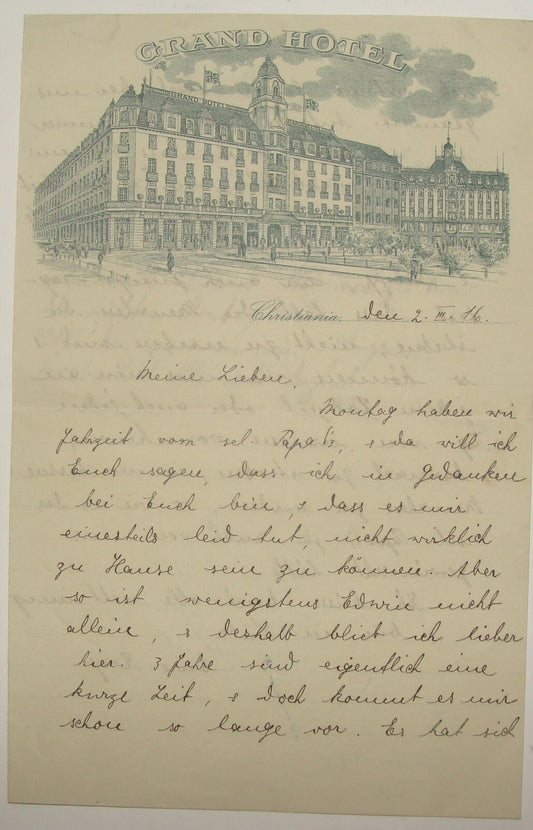 GRAND HOTEL
GRAND HOTEL
Christiania, den 2. III. 16.
Meine Lieben,
Montag haben wir
Jahrzeit vom sel. Papa l's, & da will ich
Euch sagen, dass ich in Gedanken
bei Euch bin, & dass es mir
einesteils leid tut, nicht wirklich
zu Hause sein zu können. Aber
so ist wenigstens Edwin nicht
allein, & deshalb blieb ich lieber
hier. 3 Jahre sind eigentlich eine
kurze Zeit, & doch kommt es mir
schon so lange vor. Es hat sich